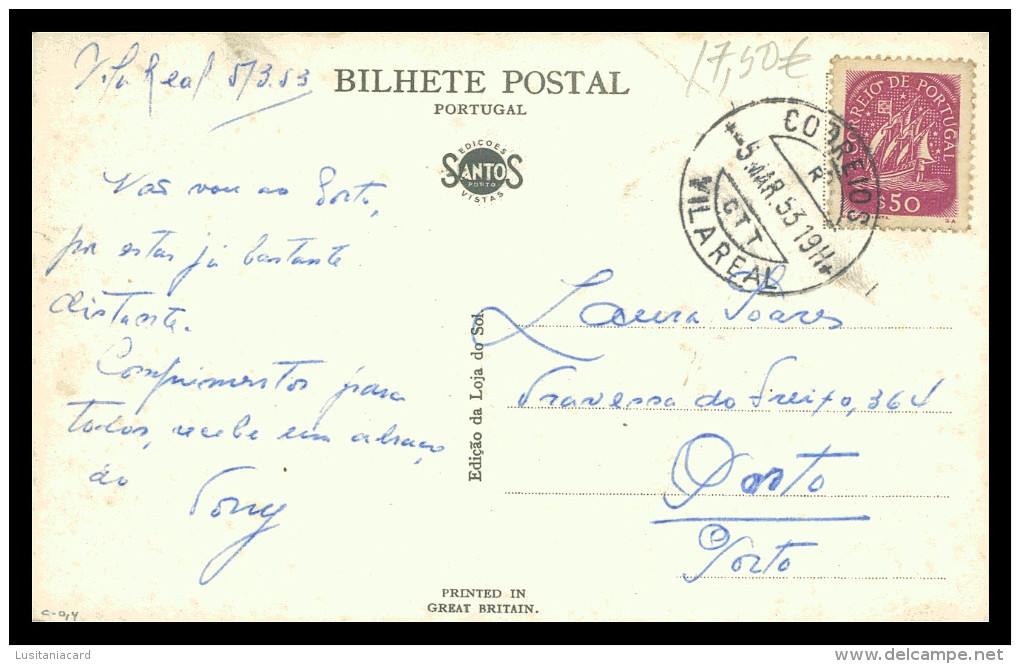 Vila Real 5/3.53
BILHETE POSTAL
PORTUGAL
17,50€
EDIÇÕES
SANTOS
PORTO
VISTAS
CORREIO DE PORTUGAL
$50
CORREIOS
-5 MAR. 53 19H
CTT
VILA REAL
Não vou ao Porto,
por estar já bastante
distante.
Comprimentos para
todos, recebe um abraço
do
Tony
Edição da Loja do Sol
Laura Soares
Travessa do Freixo, 364
Porto
Porto
PRINTED IN
GREAT BRITAIN.
C-0,4
Lusitaniacard
delcampe.net